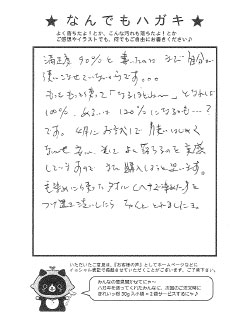 ★ なんでもハガキ ★
よく落ちたよ!とか、こんな汚れも落ちた!とか
ご感想やイラストでも、何でもご自由にお書きください♪
満足度 90%と書いたのは まだ自分が
使いこなせていないからです。。。
もっともっと使って「なるほど〜」となれば
100% 120%になるかも…?
です。4月に お試しで 使いはじめて
なんせ 安心 そして よく落ちるのを 実感
しています ので また 購入しようと思います。
毛染めに使ったタオル
つけ置き洗いしたら ちゃんと とれました。
いただいたご意見は、『お客様の声』としてホームページなどに
イニシャル表記で掲載させていただくことがございます。ご了承下さい。
みんなの意見聞かせてにゃ〜
ハガキを送ってくれたみんなに、次回のご注文時に
きれいッ粉 30g スティ緒×2袋サービスするにゃ♪